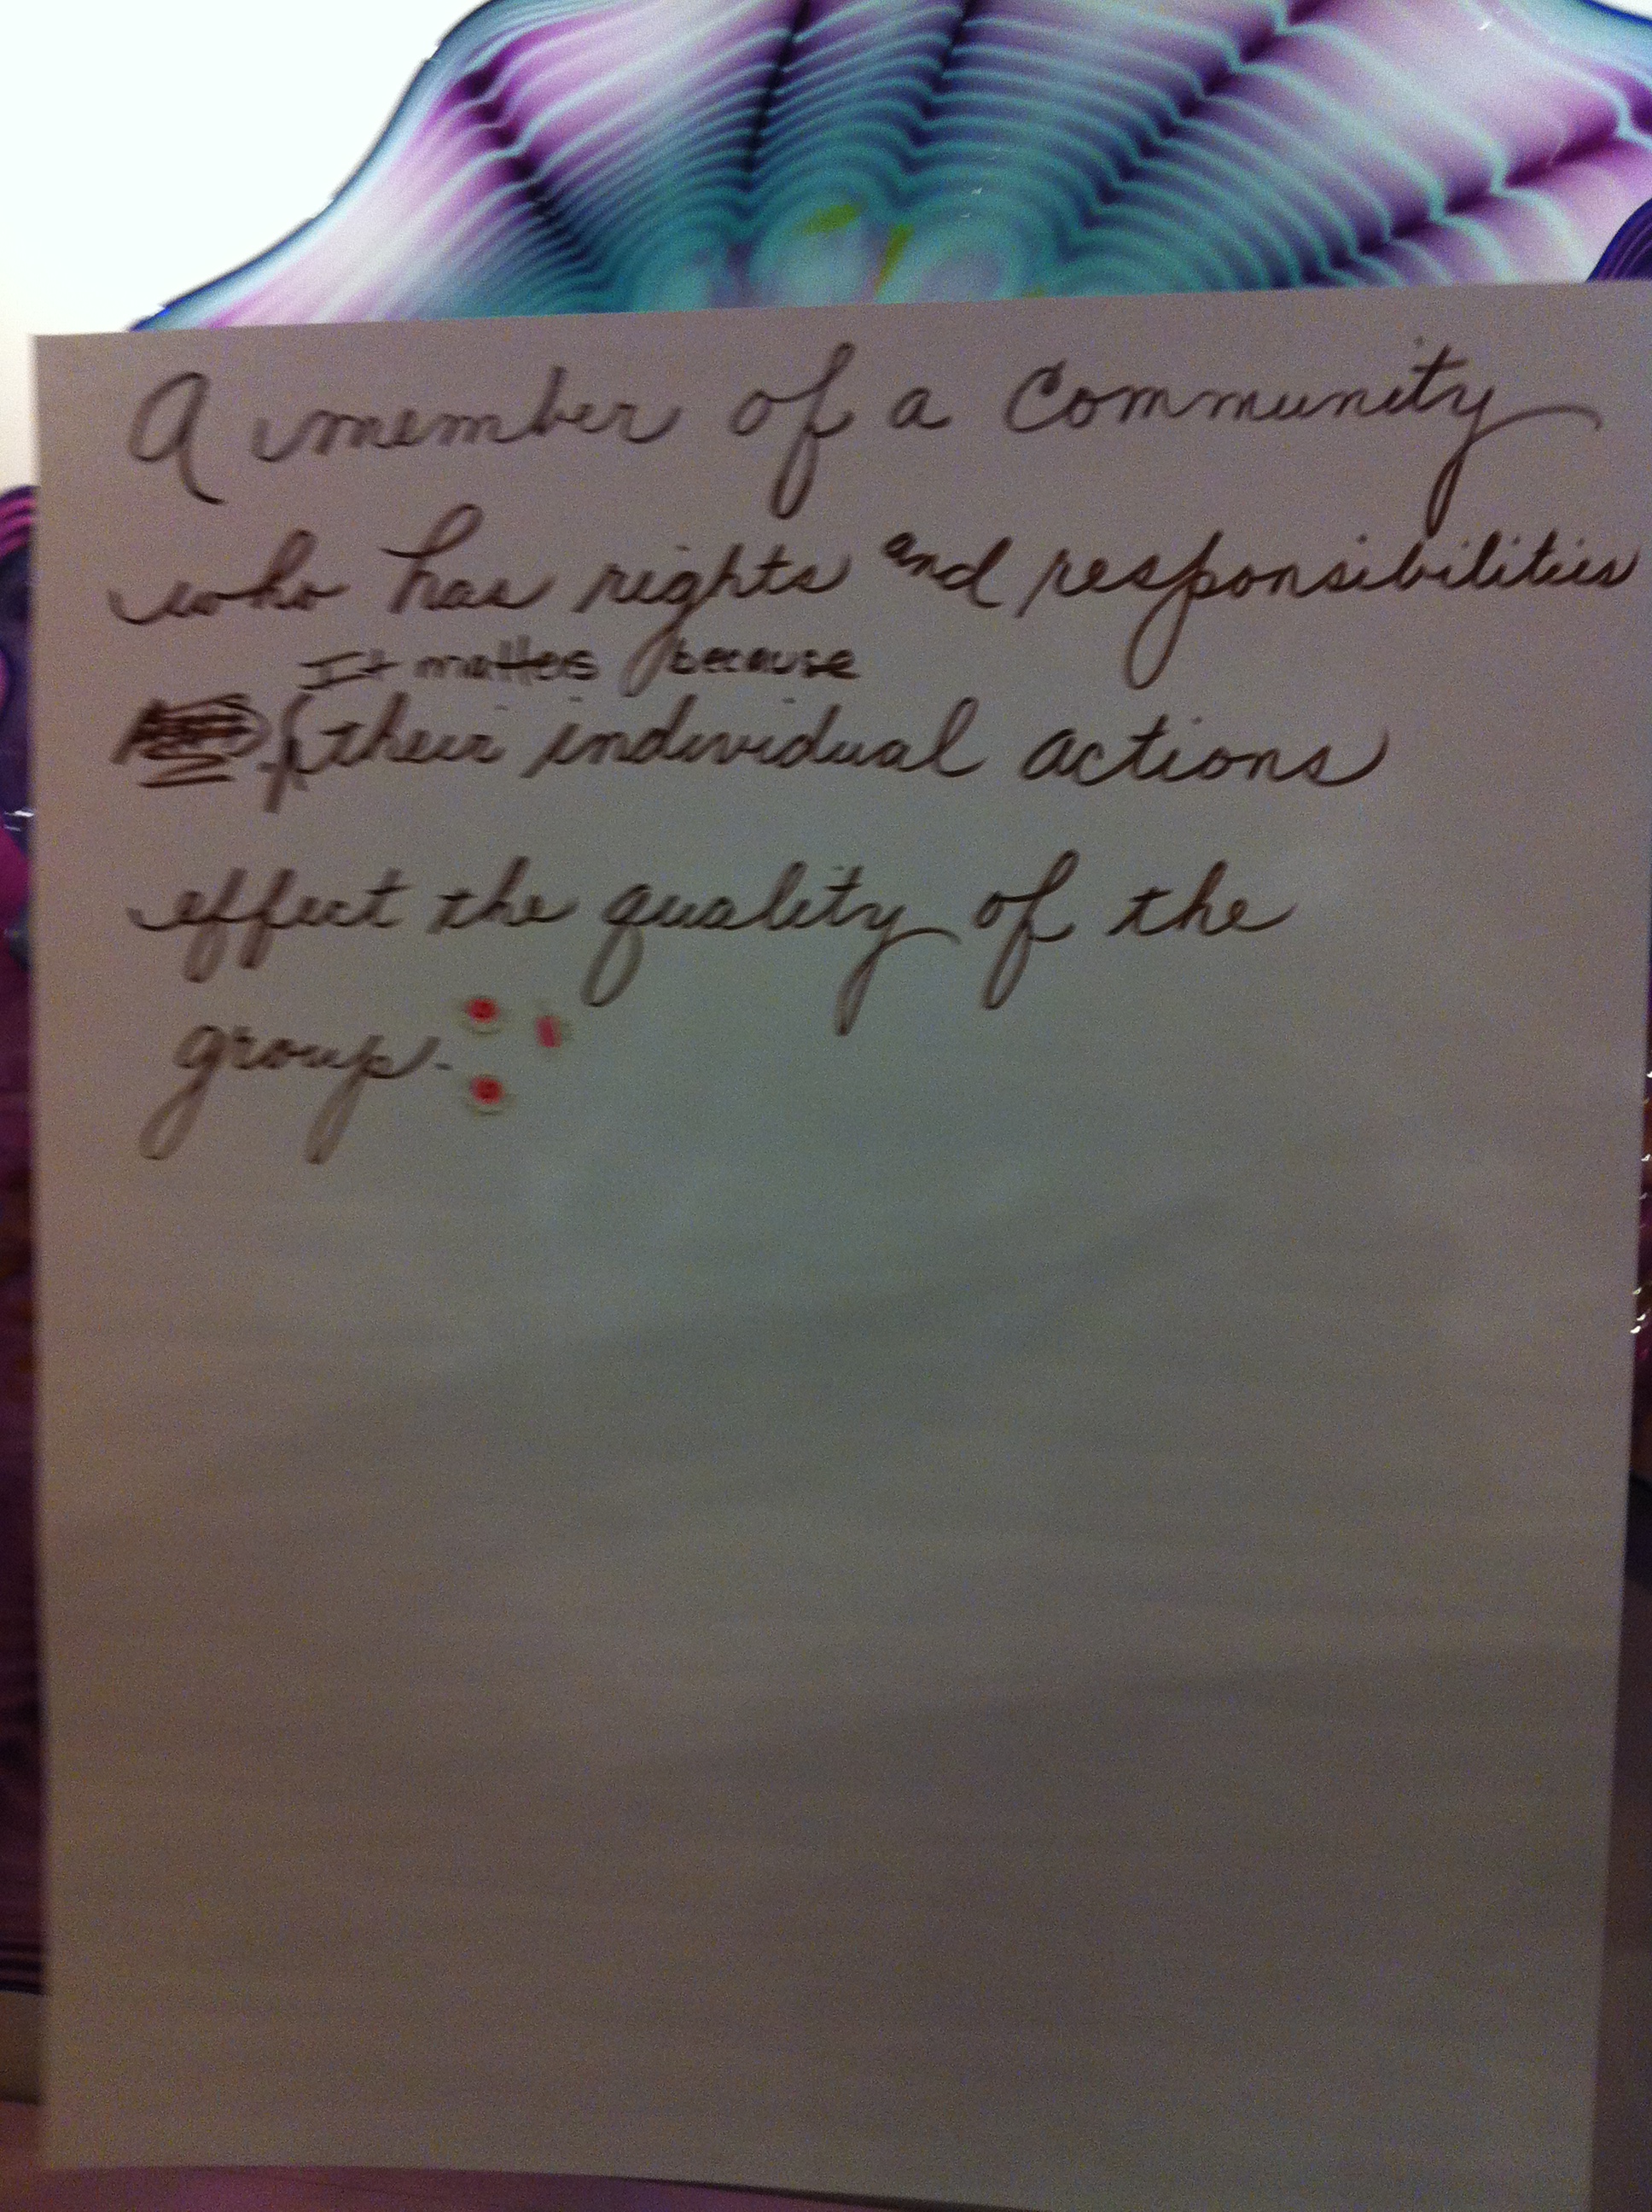 A member of a community
who has rights and responsibilities
It matters because
. their individual actions
effect the quality of the
group.